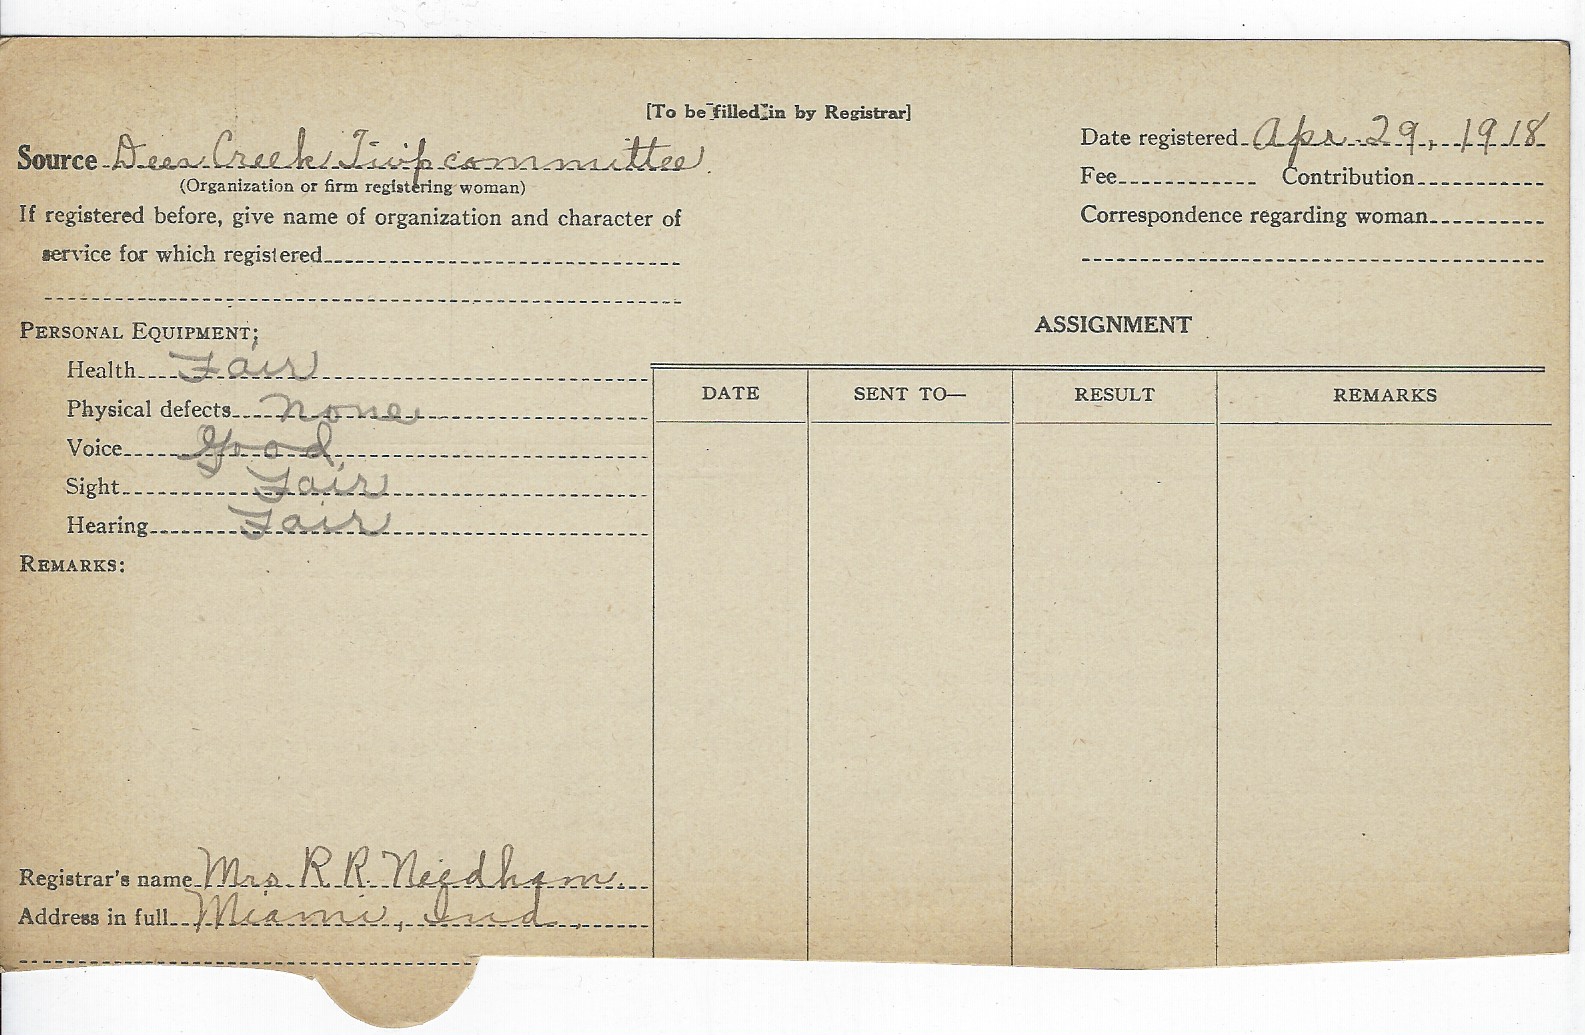 [To be filled in by Registrar]
Source Deer Creek Twp committee
(Organization or firm registering woman)
Date registered Apr 29, 1918
Fee Contribution
If registered before, give name of organization and character of
service for which registered
Correspondence regarding woman
PERSONAL EQUIPMENT;
Health Fair
Physical defects none
Voice Good
Sight Fair
Hearing Fair
REMARKS:
ASSIGNMENT
DATE SENT TO— RESULT REMARKS
Registrar's name Mrs R R. Needham
Address in full Miami, Ind.